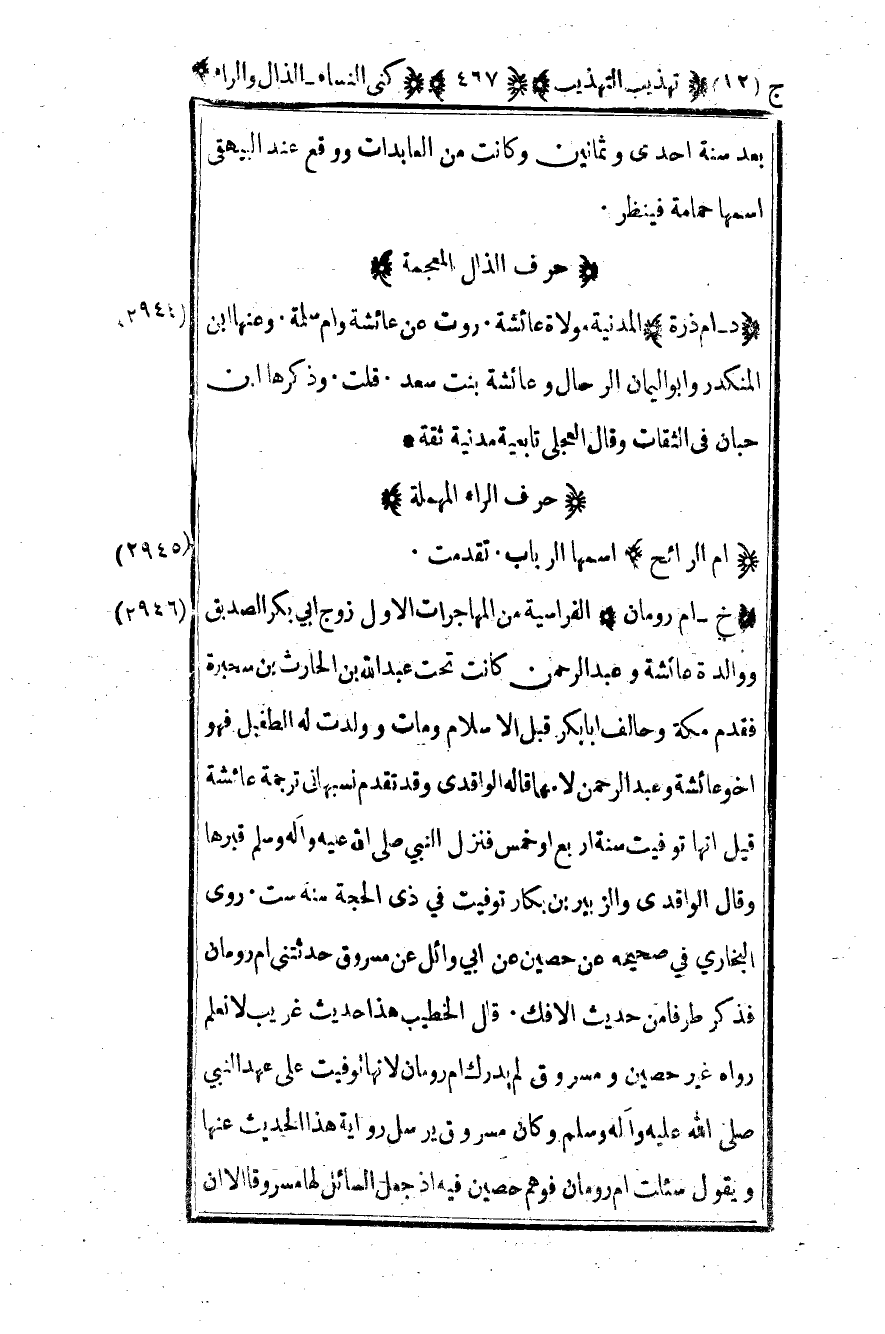 ج (١٢) ﴿ تهذيب التهذيب ﴾ ﴿ ٤٦٧ ﴾ ﴿ كنى النساء ـ الذال والراء ﴾
بعد سنة احدى وثمانين وكانت من العابدات ووقع عند البيهقى
اسمها حمامة فينظر ٠
﴿ حرف الذال المعجمة ﴾
﴿ د ـ ام ذرة ﴾ المدنية مولاة عائشة ٠ روت عن عائشة وام سلمة ٠ وعنها ابن (٢٩٤٤)
المنكدر وابو اليمان الرحال وعائشة بنت سعد ٠ قلت ٠ وذكرها ابن
حبان فى الثقات وقال العجلى تابعية مدنية ثقة *
﴿ حرف الراء المهملة ﴾
﴿ ام الرائح ﴾ اسمها الرباب ٠ تقدمت ٠ (٢٩٤٥)
﴿ خ ـ ام رومان ﴾ الفراسية من المهاجرات الاول زوج ابي بكر الصديق (٢٩٤٦)
ووالدة عائشة وعبد الرحمن كانت تحت عبد الله بن الحارث بن سخبرة
فقدم مكة وحالف ابا بكر قبل الاسلام ومات وولدت له الطفيل فهو
اخو عائشة وعبد الرحمن لامها قاله الواقدى وقد تقدم نسبها فى ترجمة عائشة
قيل انها توفيت سنة اربع او خمس فنزل النبي صلى الله عليه وآله وسلم قبرها
وقال الواقدى والزبير بن بكار توفيت في ذى الحجة سنة ست ٠ روى
البخاري في صحيحه عن حصين عن ابي وائل عن مسروق حدثتنى ام رومان
فذكر طرفا من حديث الافك ٠ قال الخطيب هذا حديث غريب لا نعلم
رواه غير حصين ومسروق لم يدرك ام رومان لانها توفيت على عهد النبي
صلى الله عليه وآله وسلم وكان مسروق يرسل رواية هذا الحديث عنها
ويقول سئلت ام رومان فوهم حصين فيه اذ جعل السائل لها مسروقا الا ان